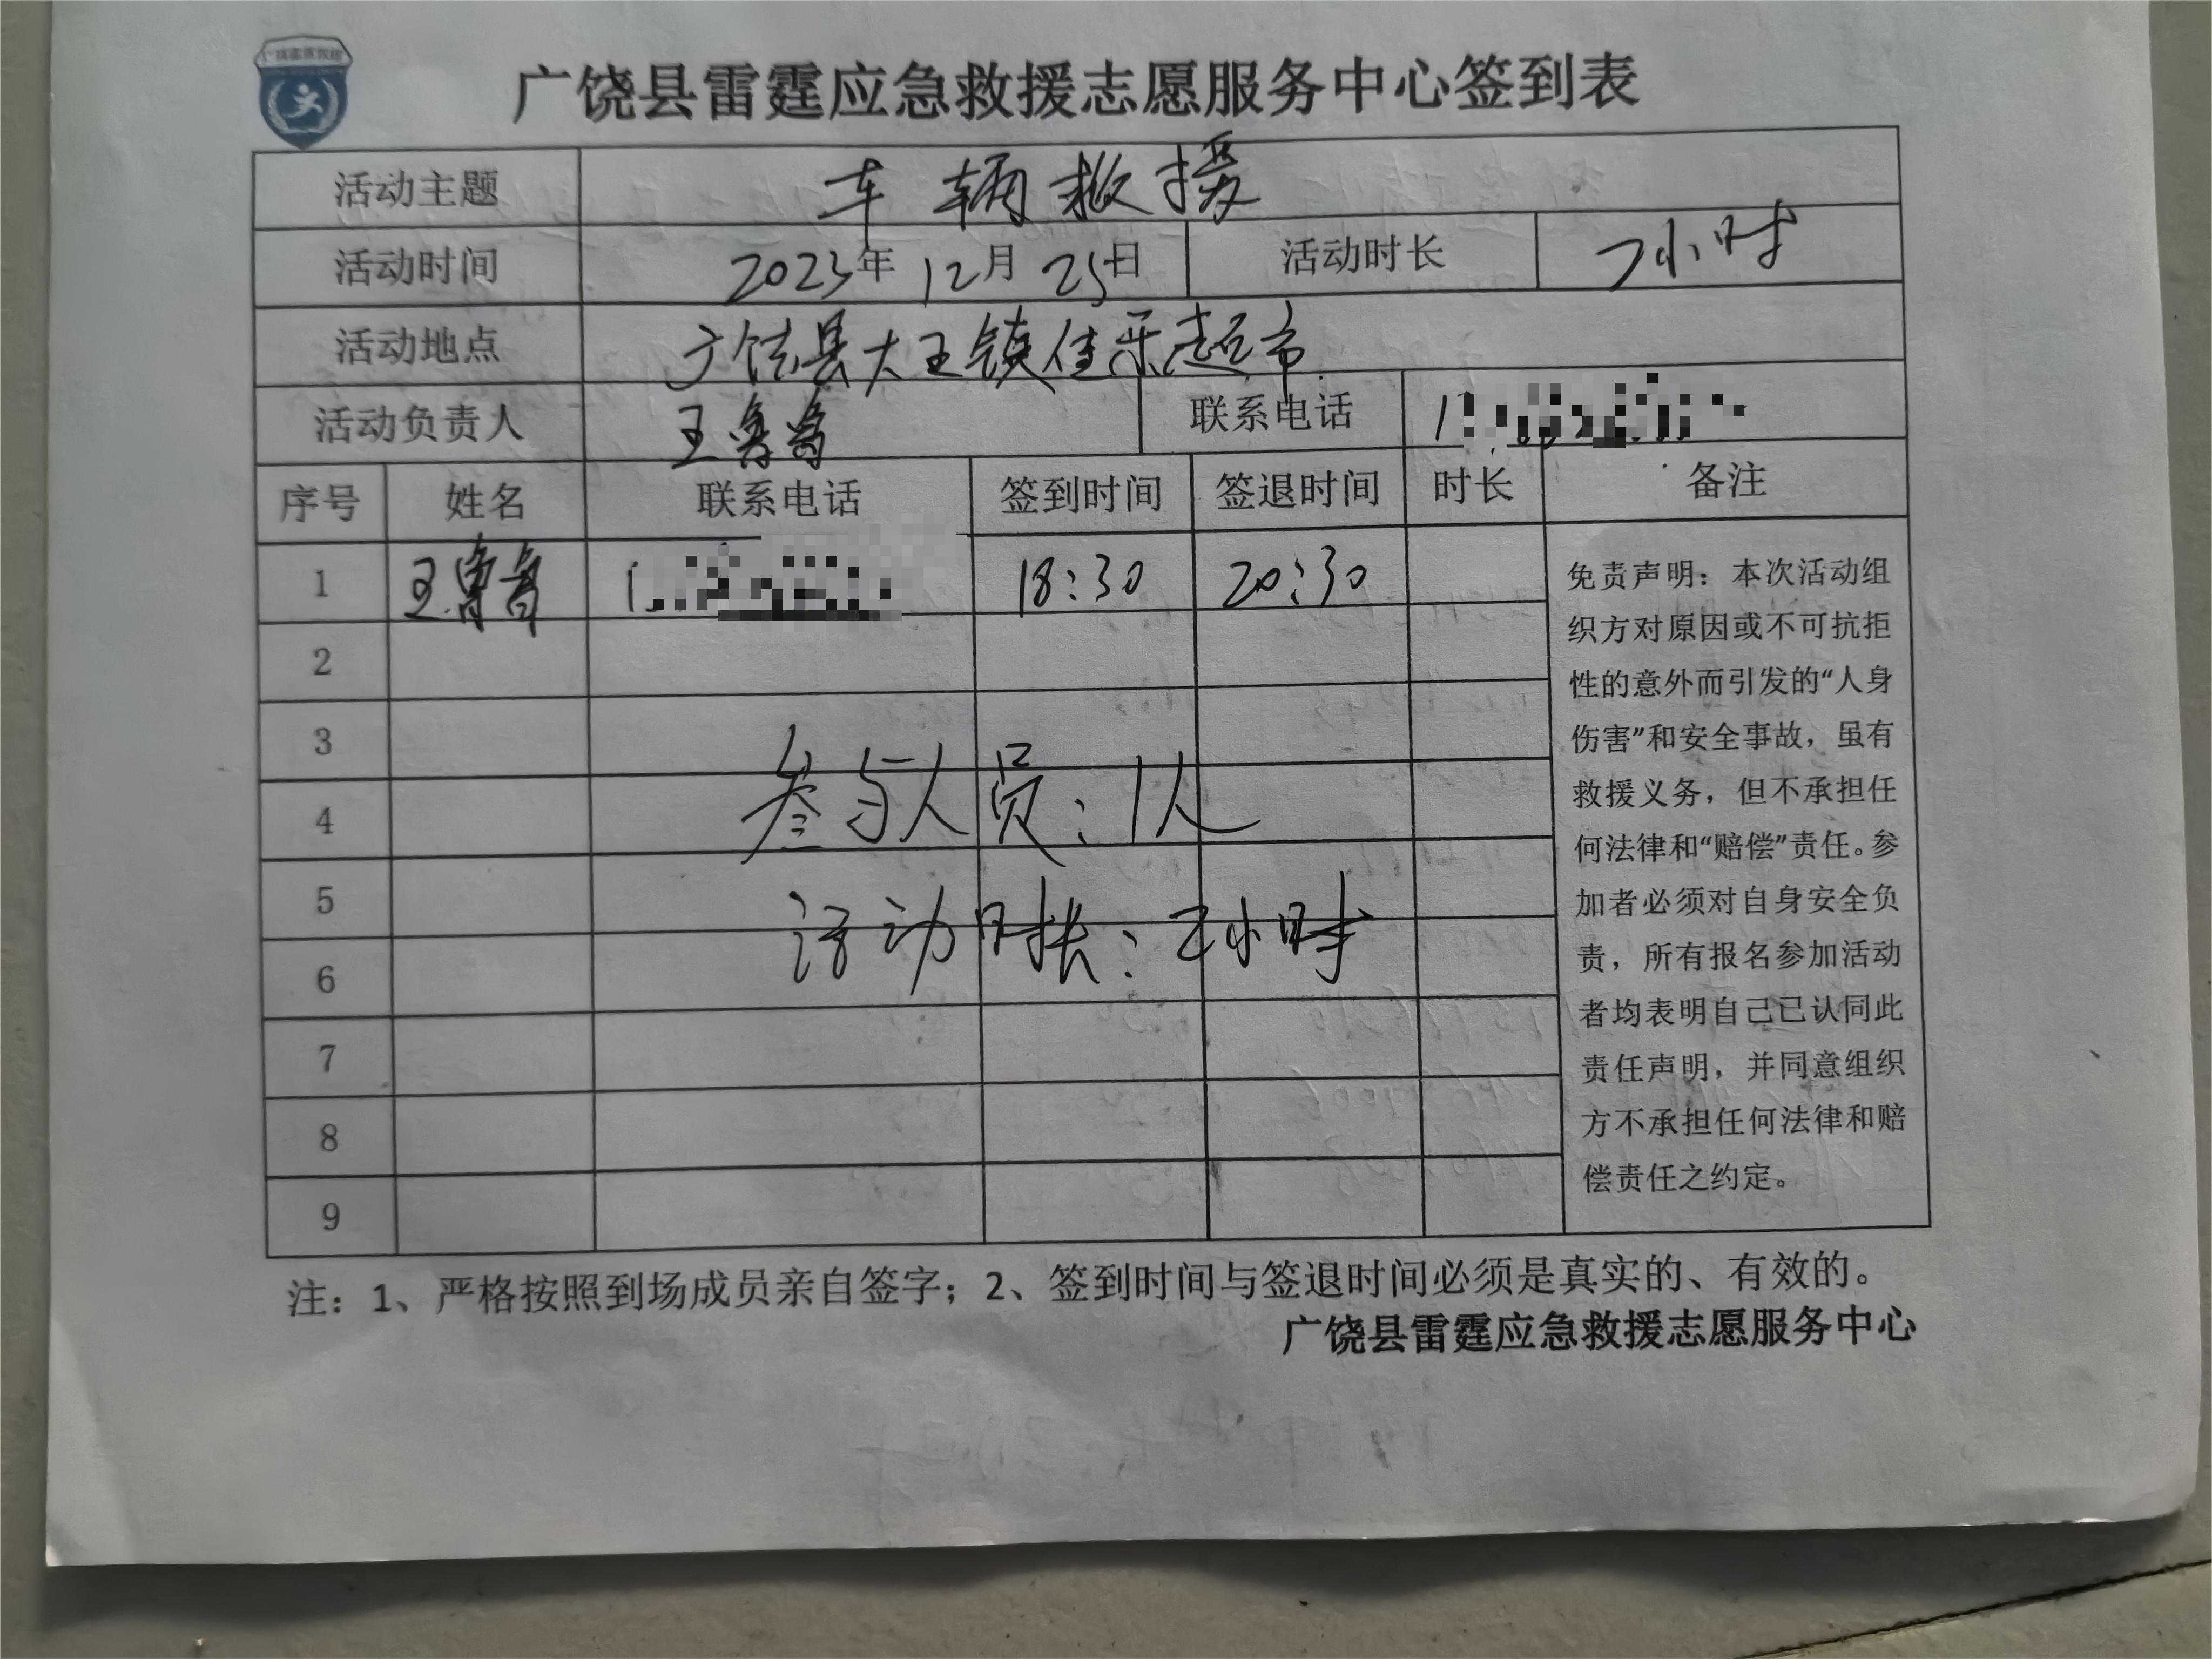 广饶县雷霆应急救援志愿服务中心签到表
活动主题 车辆救援
活动时间 2023年12月25日 活动时长 2小时
活动地点 广饶县大王镇佳乐超市
活动负责人 王鲁鲁 联系电话
序号 姓名 联系电话 签到时间 签退时间 时长 备注
1 王鲁鲁 18:30 20:30
2
3
4
5
6
7
8
9
参与人员:1人
活动时长:2小时
免责声明：本次活动组
织方对原因或不可抗拒
性的意外而引发的“人身
伤害”和安全事故，虽有
救援义务，但不承担任
何法律和“赔偿”责任。参
加者必须对自身安全负
责，所有报名参加活动
者均表明自己已认同此
责任声明，并同意组织
方不承担任何法律和赔
偿责任之约定。
注：1、严格按照到场成员亲自签字；2、签到时间与签退时间必须是真实的、有效的。
广饶县雷霆应急救援志愿服务中心